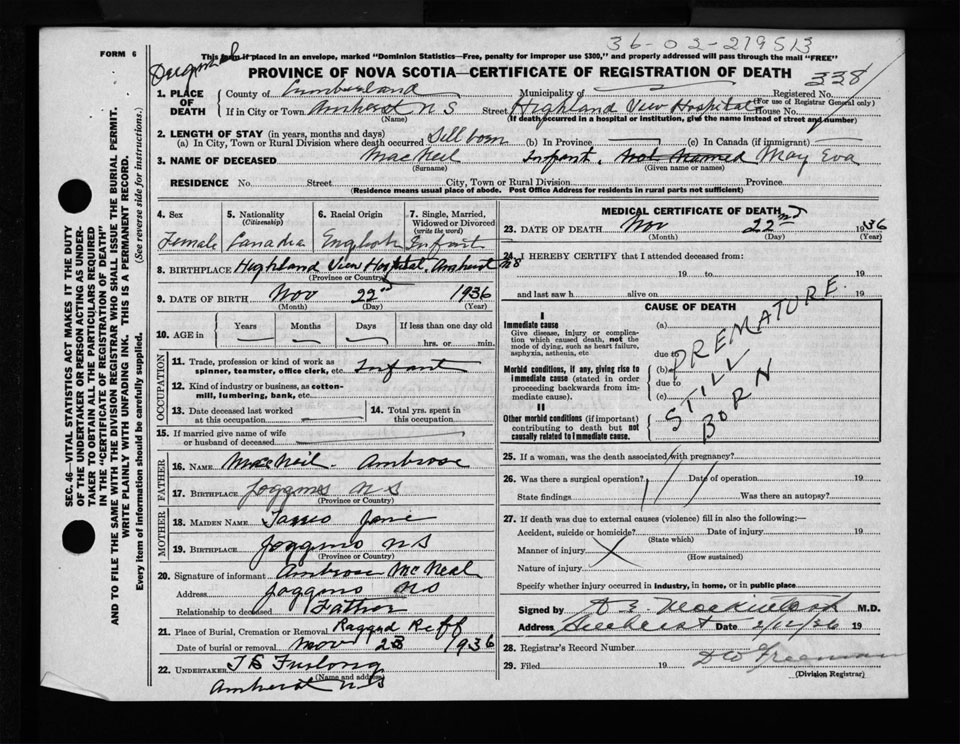 36-02-219513
FORM 6
This form if placed in an envelope, marked "Dominion Statistics—Free, penalty for improper use $300," and properly addressed will pass through the mail "FREE"
PROVINCE OF NOVA SCOTIA—CERTIFICATE OF REGISTRATION OF DEATH 338
1. PLACE OF DEATH
County of Cumberland Municipality of Registered No.
(For use of Registrar General only)
If in City or Town Amherst N S Street Highland View Hospital House No.
(Name) (If death occurred in a hospital or institution, give the name instead of street and number)
2. LENGTH OF STAY (in years, months and days)
(a) In City, Town or Rural Division where death occurred Still born (b) In Province (c) In Canada (if immigrant)
3. NAME OF DECEASED MacNeil Infant. Not Named May Eva
(Surname) (Given name or names)
RESIDENCE No. Street City, Town or Rural Division Province
(Residence means usual place of abode. Post Office Address for residents in rural parts not sufficient)
4. Sex
Female
5. Nationality
(Citizenship)
6. Racial Origin
7. Single, Married, Widowed or Divorced
(write the word)
Infant
8. BIRTHPLACE Highland View Hospital, Amherst NS
(Province or Country)
9. DATE OF BIRTH Nov 22nd 1936
(Month) (Day) (Year)
10. AGE in Years Months Days If less than one day old
hrs. or min.
OCCUPATION
11. Trade, profession or kind of work as
spinner, teamster, office clerk, etc. Infant
12. Kind of industry or business, as cotton-
mill, lumbering, bank, etc.
13. Date deceased last worked
at this occupation
14. Total yrs. spent in
this occupation
15. If married give name of wife
or husband of deceased
FATHER
16. NAME MacNeil. Ambrose
17. BIRTHPLACE Joggins N S
MOTHER
18. MAIDEN NAME Jane
19. BIRTHPLACE Joggins N S
(Province or Country)
20. Signature of informant Ambrose McNeal
Address Joggins NS
Relationship to deceased Father
21. Place of Burial, Cremation or Removal Ragged Reff
Date of burial or removal Nov 23 1936
22. UNDERTAKER Furlong
(Name and address)
Amherst NS
MEDICAL CERTIFICATE OF DEATH
23. DATE OF DEATH Nov 22nd 1936
(Month) (Day) (Year)
24. I HEREBY CERTIFY that I attended deceased from:
19 to 19
and last saw h alive on 19
CAUSE OF DEATH
I
Immediate cause
Give disease, injury or complica-
tion which caused death, not the
mode of dying, such as heart failure,
asphyxia, asthenia, etc
(a)
due to
Morbid conditions, if any, giving rise to
immediate cause (stated in order
proceeding backwards from im-
mediate cause).
(b)
due to
(c)
II
Other morbid conditions (if important)
contributing to death but not
causally related to immediate cause.
PREMATURE
STILL
BORN
25. If a woman, was the death associated with pregnancy?
26. Was there a surgical operation? Date of operation 19
State findings Was there an autopsy?
27. If death was due to external causes (violence) fill in also the following:—
Accident, suicide or homicide? Date of injury 19
(State which)
Manner of injury
(How sustained)
Nature of injury
Specify whether injury occurred in industry, in home, or in public place
Signed by M.D.
Address Amherst Date 2/12/36 19
28. Registrar's Record Number
29. Filed 19
(Division Registrar)
SEC. 46—VITAL STATISTICS ACT MAKES IT THE DUTY
OF THE UNDERTAKER OR PERSON ACTING AS UNDER-
TAKER TO OBTAIN ALL THE PARTICULARS REQUIRED
IN THE "CERTIFICATE OF REGISTRATION OF DEATH"
AND TO FILE THE SAME WITH THE DIVISION REGISTRAR WHO SHALL ISSUE THE BURIAL PERMIT.
WRITE PLAINLY WITH UNFADING INK. THIS IS A PERMANENT RECORD.
Every item of information should be carefully supplied. (See reverse side for instructions.)